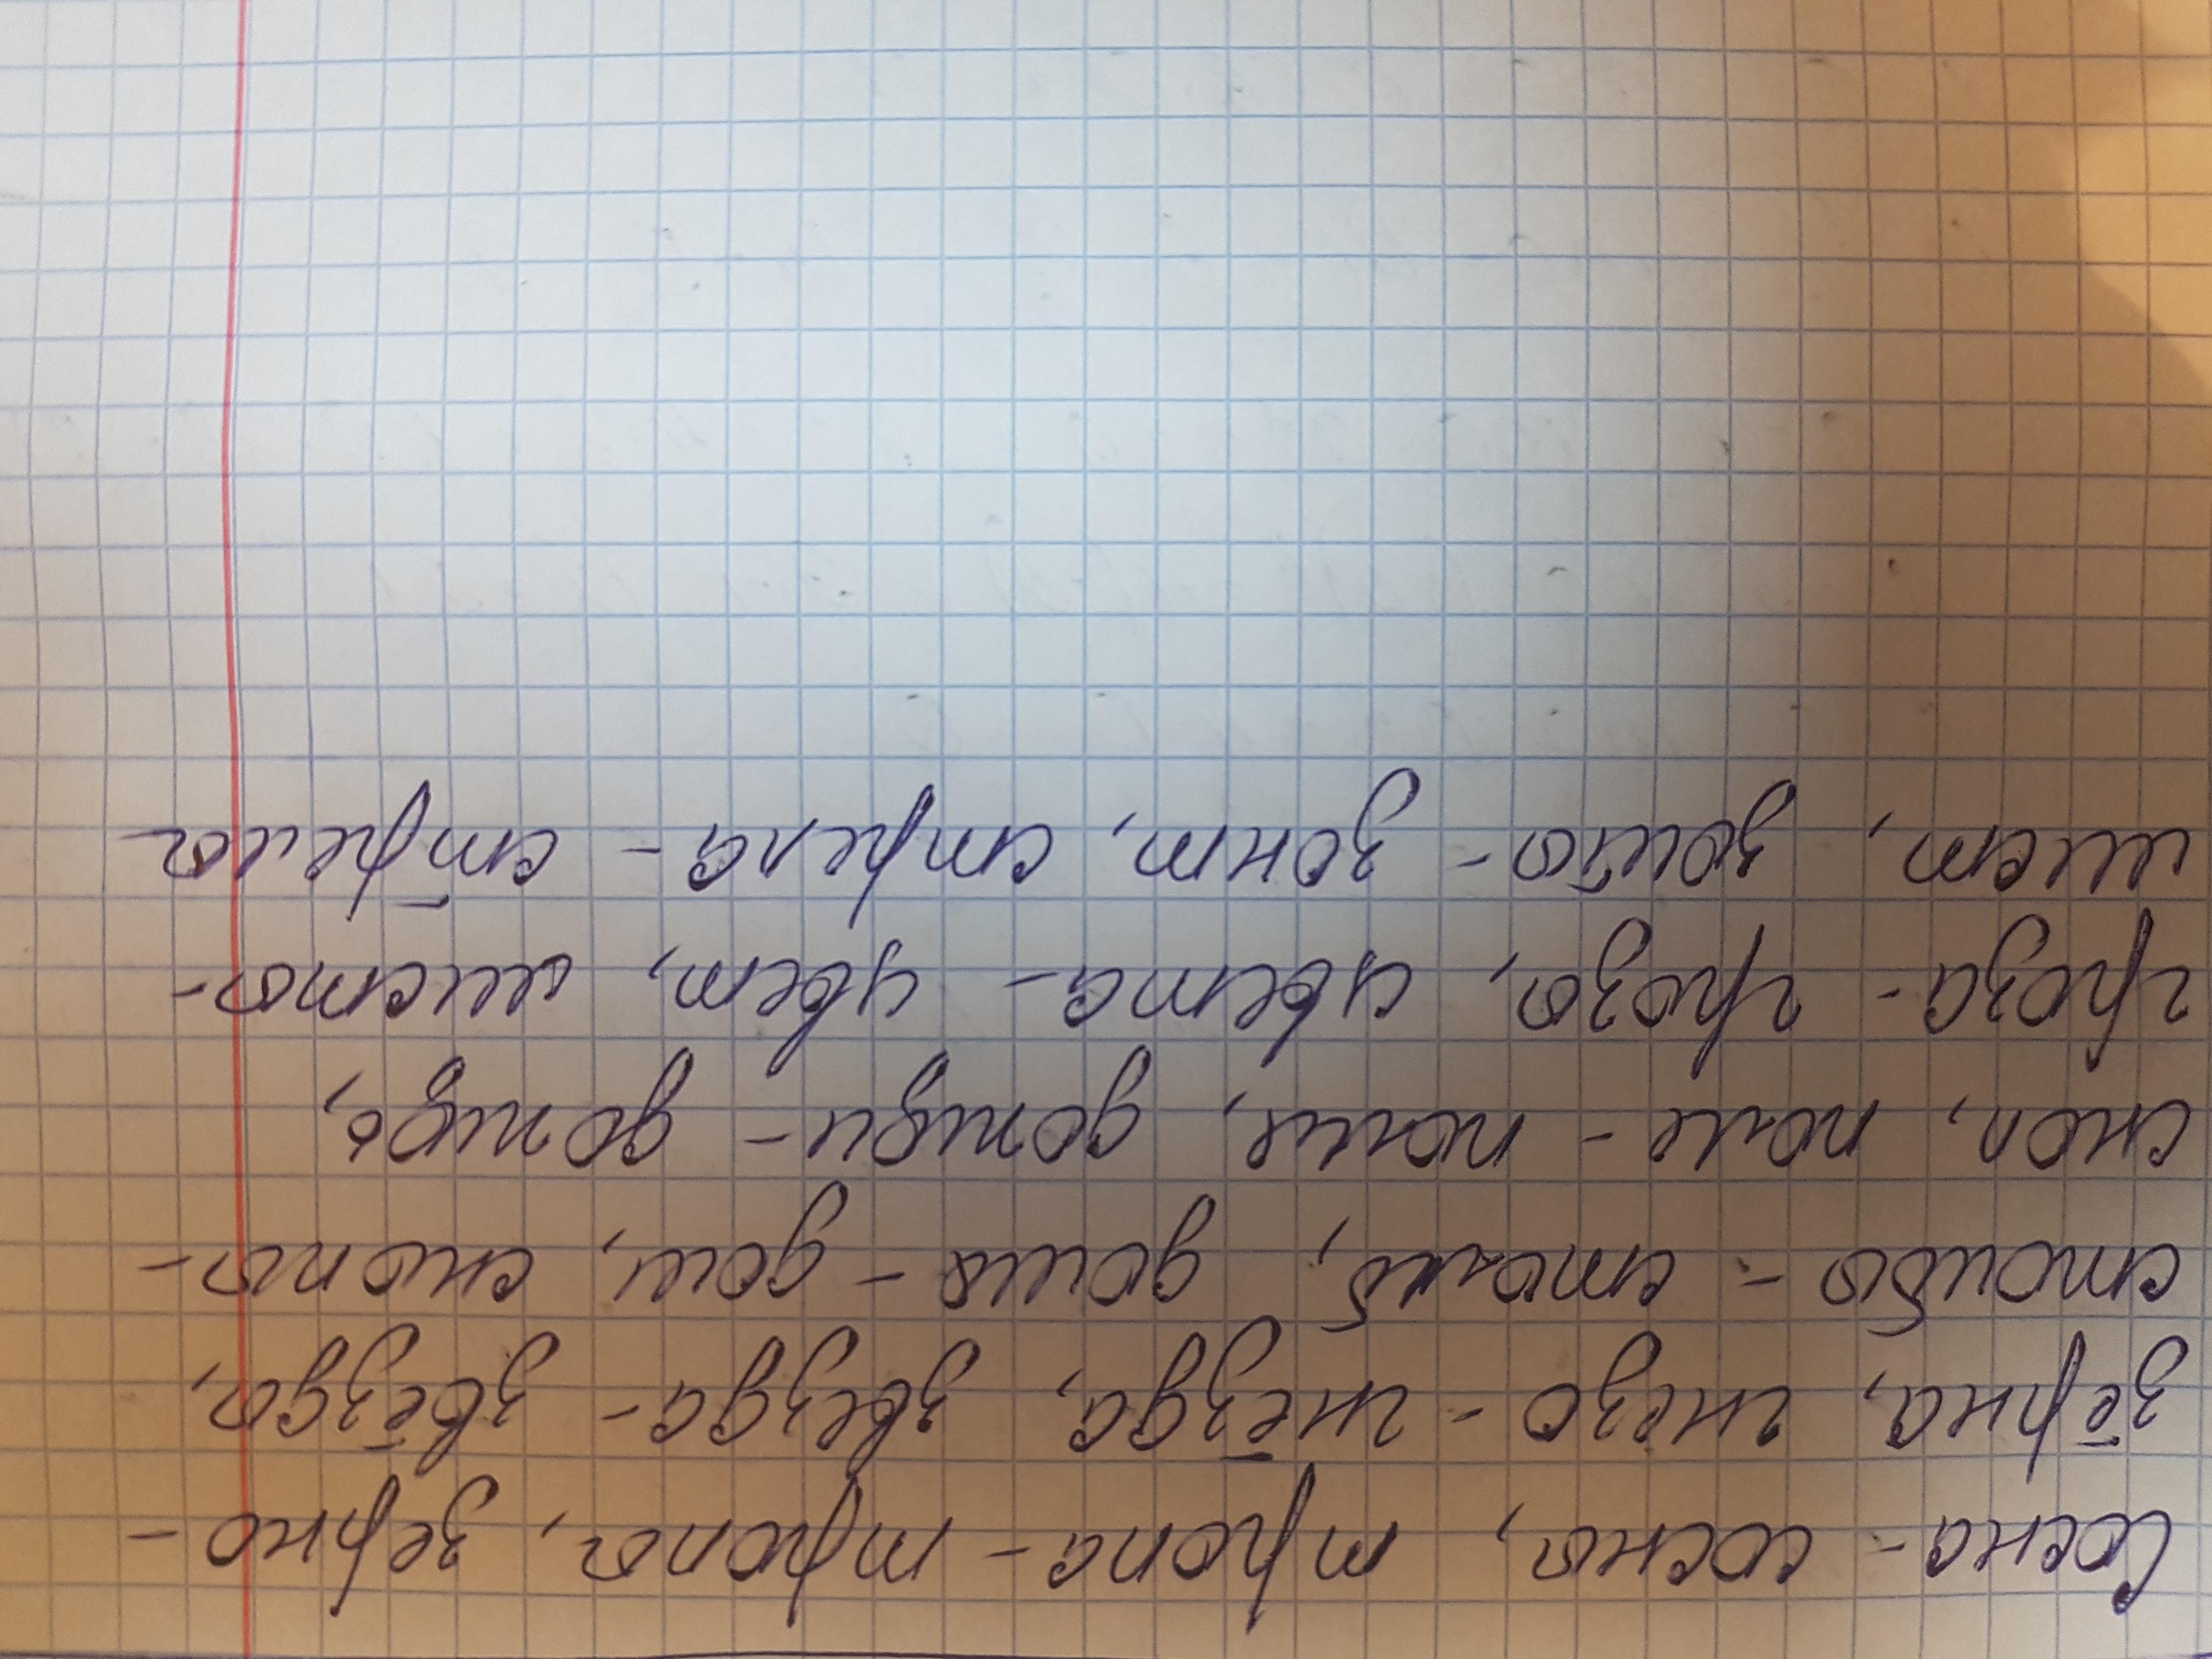 Сосна - сосны, тропа - тропы, зерно -
зёрна, гнезо - гнёзда, звезда - звёзды,
столбы - столб, дома - дом, снопы -
сноп, поле - поле, дожди - дождь,
гроза - грозы, цвета - цвет, листы -
лист, зонты - зонт, стрела - стрелы